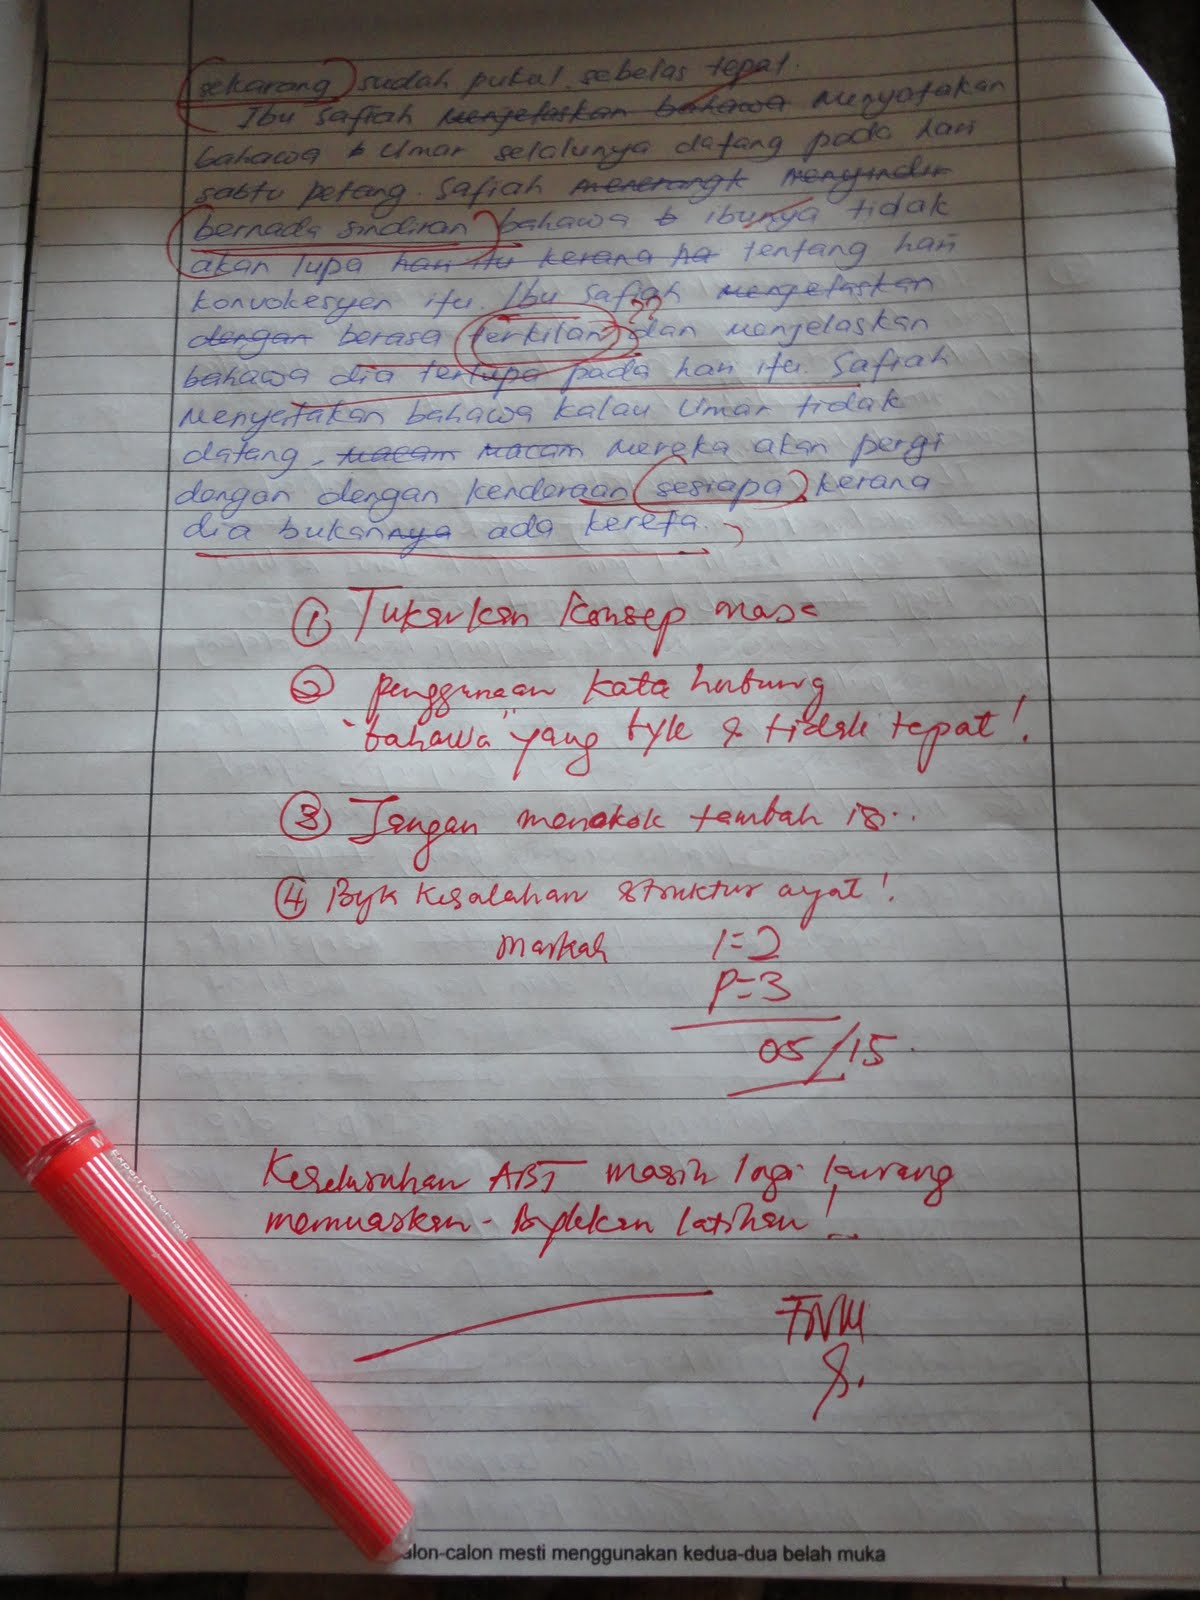 sekarang sudah pukul sebelas tepat.
Ibu Safiah menjelaskan bahawa menyatakan
bahawa Umar selalunya datang pada hari
sabtu petang. Safiah menerangk menyindir
bernada sindiran bahawa ibunya tidak
akan lupa hari itu kerana ha tentang hari
konvokesyen itu. Ibu Safiah menjelaskan
dengan berasa terkilan ?? dan menjelaskan
bahawa dia terlupa pada hari itu. Safiah
menyatakan bahawa kalau Umar tidak
datang, macam macam mereka akan pergi
dengan dengan kenderaan sesiapa kerana
dia bukannya ada kereta.
① Tukarkan konsep masa
② penggunaan kata hubung
"bahawa" yang byk & tidak tepat!
③ Jangan menokok tambah isi..
④ Byk kesalahan struktur ayat!
Markah I=2
P=3
05/15
Keseluruhan ABT masih lagi kurang
memuaskan - Bykkan latihan!
alon-calon mesti menggunakan kedua-dua belah muka